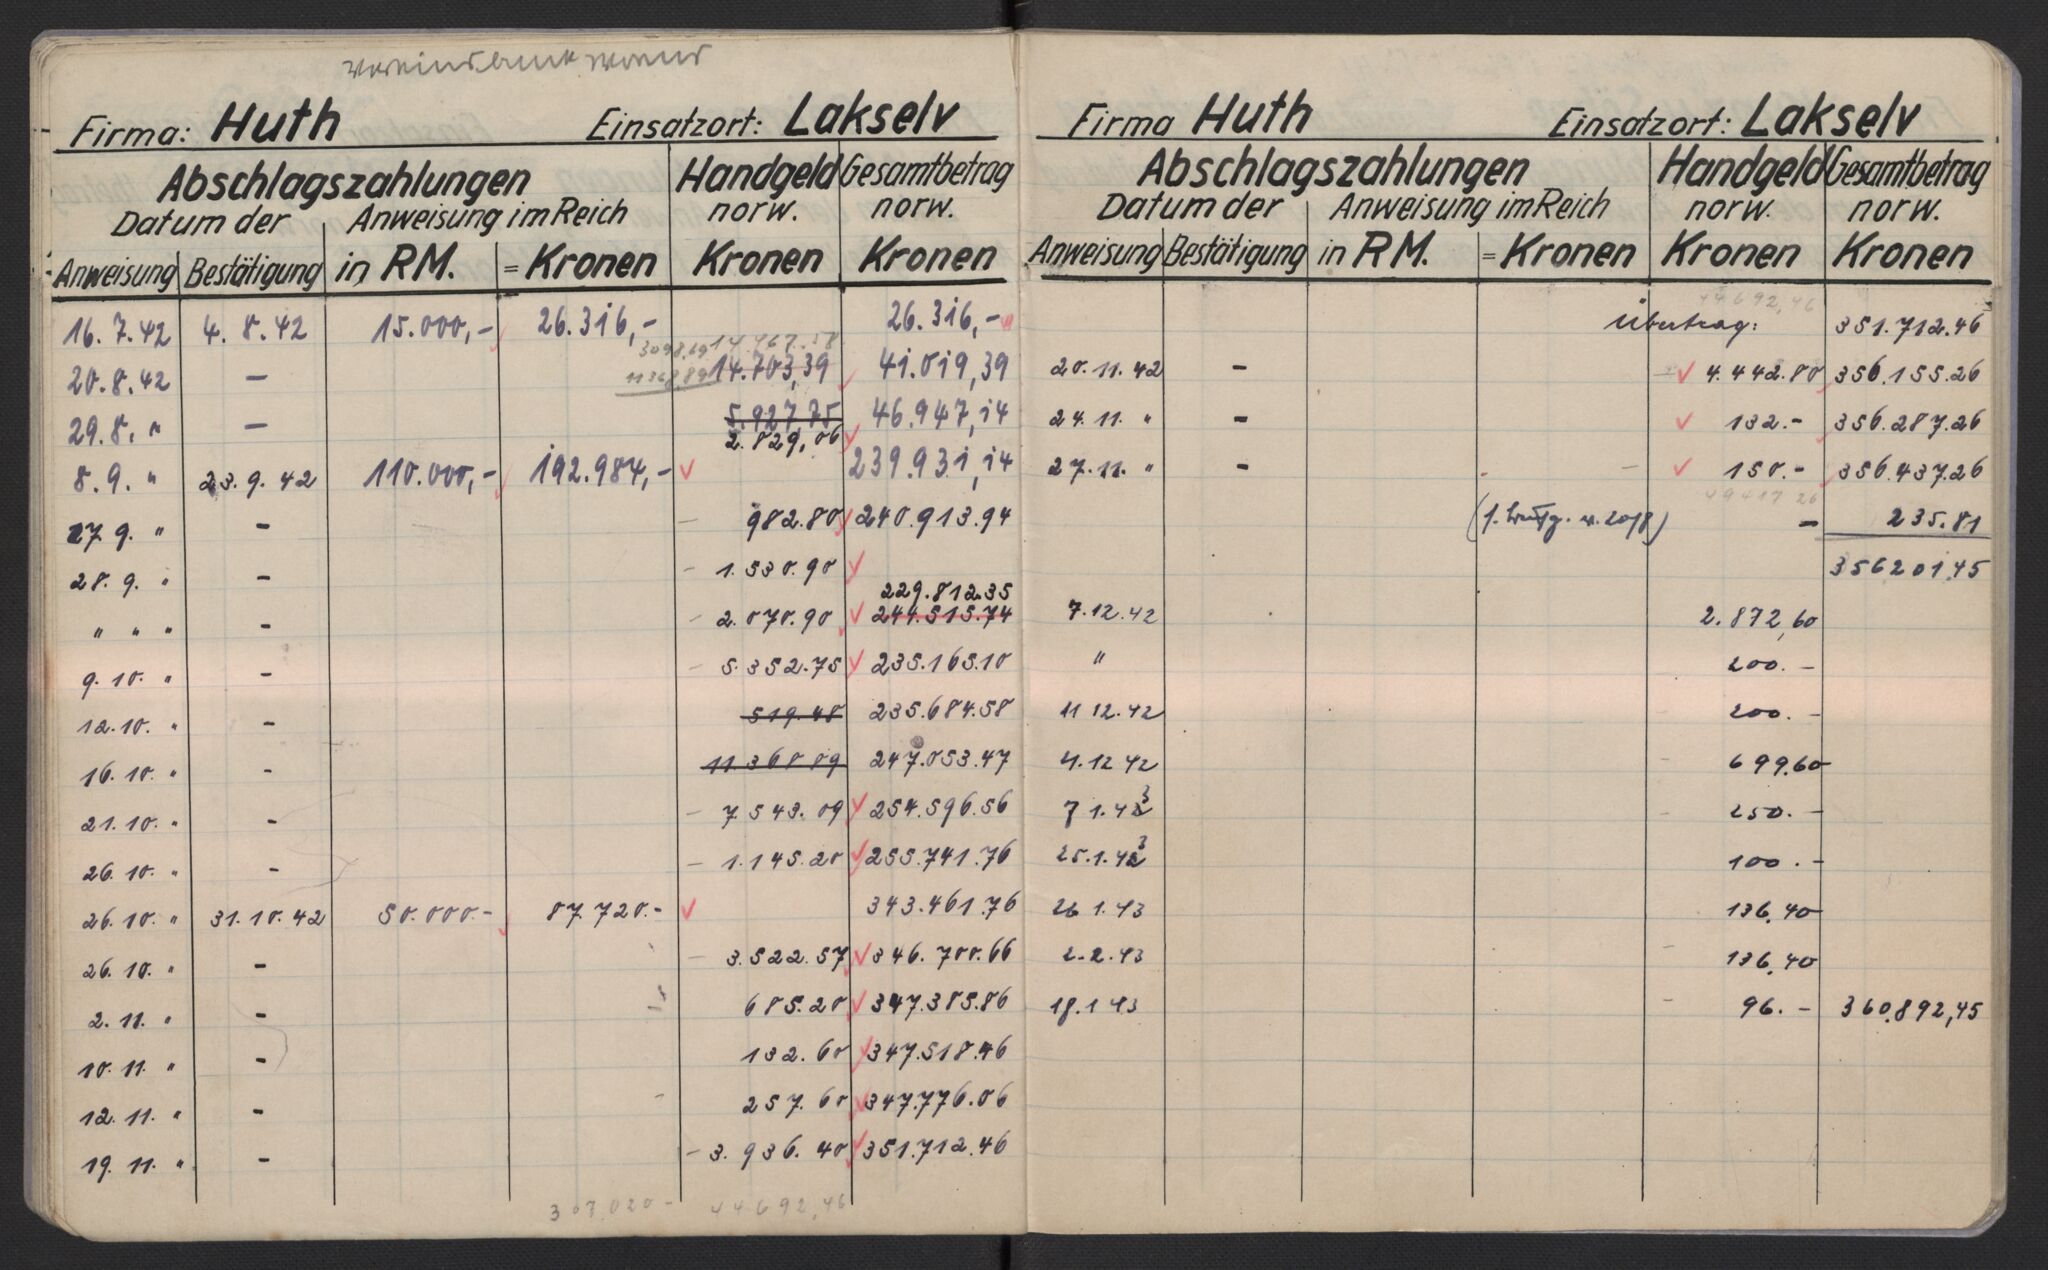 Firma: Huth Einsatzort: Lakselv
Abschlagszahlungen Handgeld Gesamtbetrag
Datum der Anweisung im Reich norw. norw.
Anweisung Bestätigung in RM. = Kronen Kronen Kronen
16.7.42 4.8.42 15.000,- 26.316,- 26.316,-
3098.69 14.467.58
20.8.42 — 14.703,39 41.019,39
1136889
29.8. " — 5.927,75 46.947,14
2.829,06
8.9. " 23.9.42 110.000,- 192.984,- 239.931,14
27 9. " - 982.80 240.913.94
28.9. " - 1.530.90
229.812.35
" " " - 2.070.90 244.515.74
9.10. " - 5.352.75 235.165.10
12.10. " - 519.48 235.684.58
16.10. " - 11.368 89 247.053.47
21.10. " - 7.543.09 254.596.56
26.10. " - 1.145.20 255.741.76
26.10. " 31.10.42 50.000.- 87.720.- 343.461.76
26.10. " - 3.522.57 346.700.66
2.11. " - 685.20 347.385.86
10.11. " - 132.60 347.518.46
12.11. " - 257.60 347.776.06
19.11. " - 3.936.40 351.712.46
307.020- 44692,46
Firma Huth Einsatzort: Lakselv
Abschlagszahlungen Handgeld Gesamtbetrag
Datum der Anweisung im Reich norw. norw.
Anweisung Bestätigung in RM. = Kronen Kronen Kronen
44692,46
Übertrag: 351.712.46
20.11.42 - 4.442.80 356.155.26
24.11. " - 132.- 356.287.26
27.11. " - 150.- 356.437.26
49417 26
- 235.81
356201,45
7.12.42 2.872,60
" 200.-
11 12.42 200.-
11.12 42 699.60
7 1.43 250.-
25.1.43 100.-
26 1.43 136,40
2.2.43 136,40
18.1 43 96.- 360.892,45